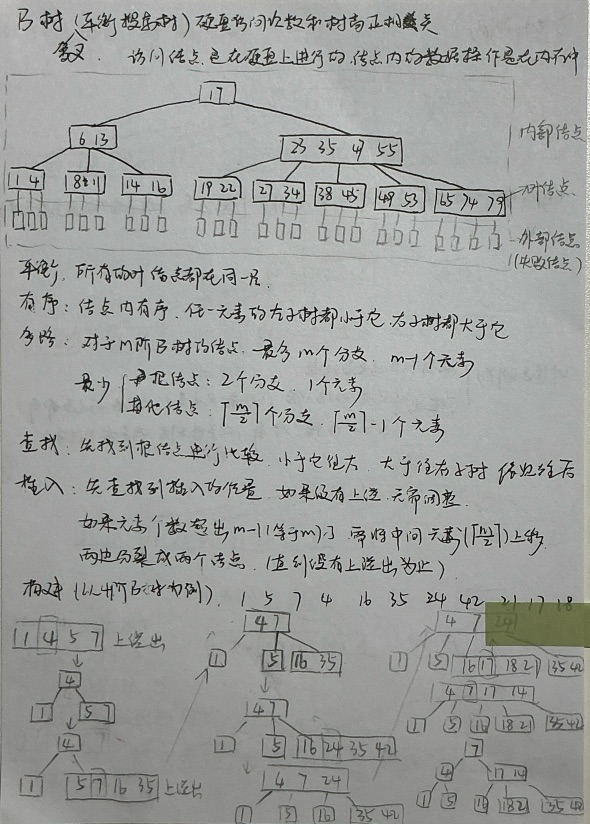 B树 (平衡搜索树) 硬盘访问次数和树高正相关
多叉. 访问结点是在硬盘上进行的, 结点内的数据操作是在内存中
17
6 13
23 35 49 55
内部结点
1 4
8 11
14 16
19 22
27 34
38 45
49 53
65 74 79
叶结点
外部结点
(失败结点)
平衡, 所有的叶结点都在同一层.
有序: 结点内有序, 任一元素的左子树都小于它, 右子树都大于它
多路: 对于m阶B树的结点, 最多m个分支, m-1个元素
最少 根结点: 2个分支, 1个元素
其他结点: ⌈m/2⌉个分支, ⌈m/2⌉-1个元素
查找: 先找到根结点进行比较, 小于它往左, 大于往右子树 依次往后
插入: 先查找到插入的位置, 如果没有上溢, 无需调整
如果元素个数超出m-1(等于m)了 需将中间元素(⌈m/2⌉)上移
两边分裂成两个结点. (直到没有上溢出为止)
构建 (以4阶B树为例). 1 5 7 4 16 35 24 42 21 17 18
1 4 5 7 上溢出
4
1
5 7
4
1
5 7 16 35 上溢出
4 7
1
5
16 35
4 7
1
5
16 24 35 42
4 7 24
1
5
16
35 42
4 7 24
1
5
16 17 18 21
35 42
4 7 17 24
1
5
16
18 21
35 42
7
4
17 24
1
5
16
18 21
35 42